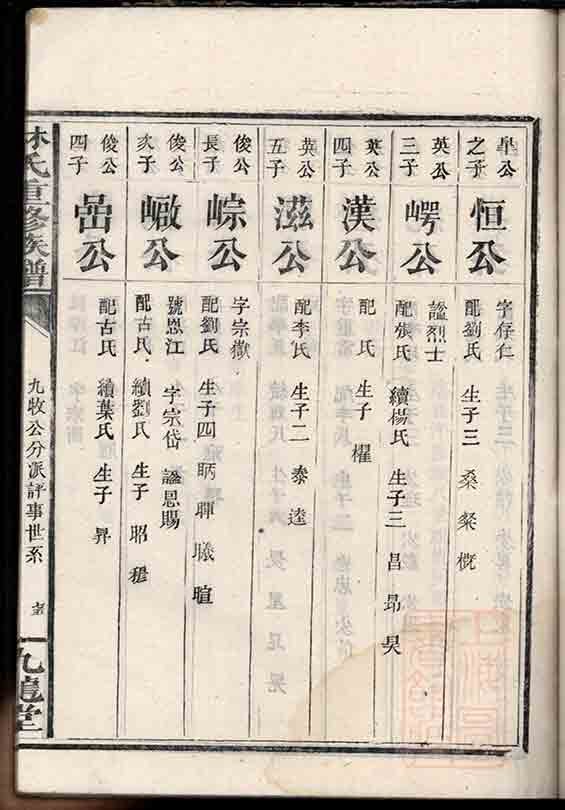 皐公之子
恒公
字存仁
配劉氏 生子三 桑 粲 概
英公三子
崿公
謚烈士
配張氏 續楊氏 生子三 昌 昂 昊
英公四子
漢公
配 氏 生子 櫂
英公五子
滋公
配李氏 生子二 泰 逵
俊公長子
崇公
字宗嶽
配劉氏 生子四 昞 暉 曦 暄
俊公次子
字宗岱 謚恩賜
號恩江
配古氏 續劉氏 生子 昭
俊公四子
配古氏 續葉氏 生子 昇
林氏重修族譜
九牧公分派評事世系
九龍堂